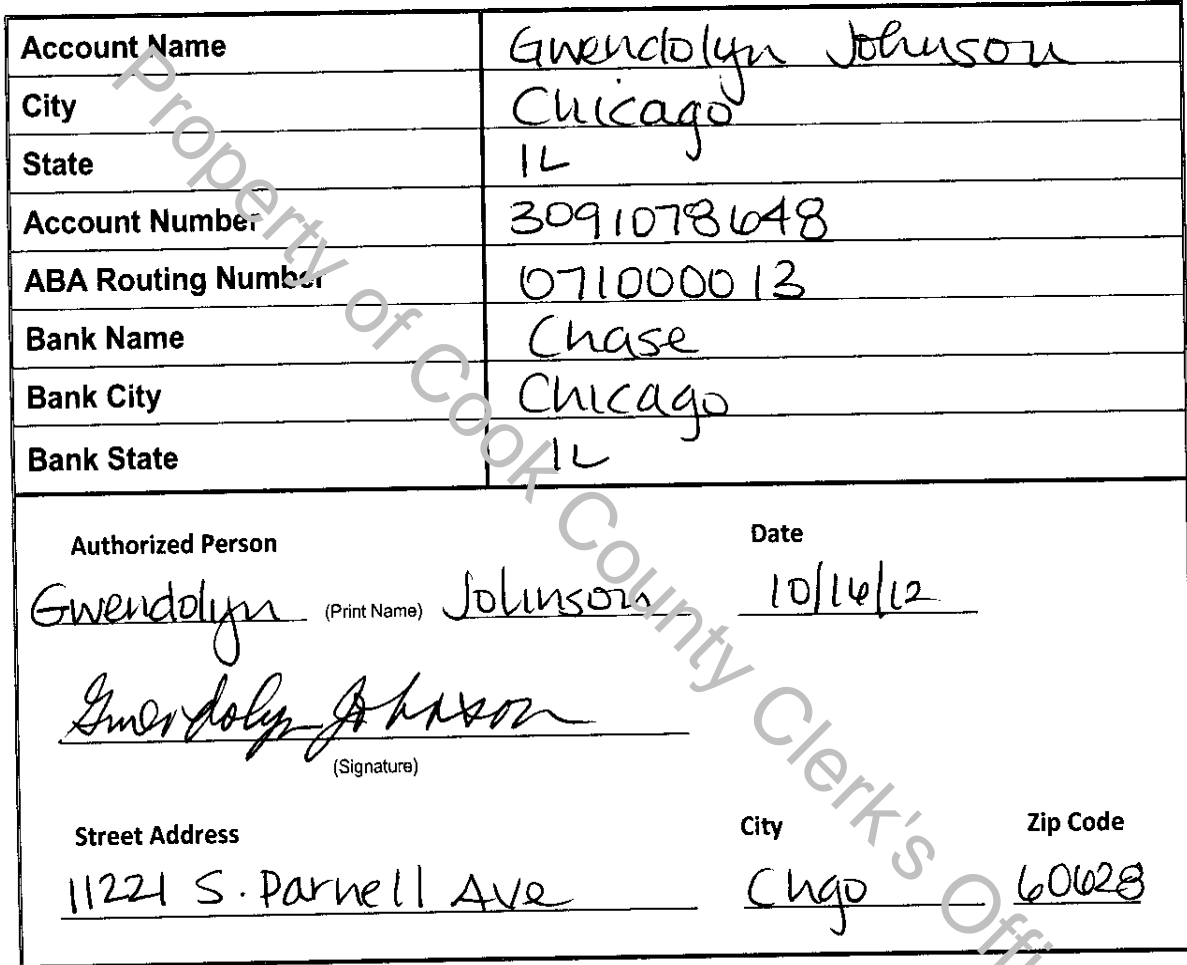 Account Name Gwendolyn Johnson
City Chicago
State IL
Account Number 3091078648
ABA Routing Number 071000013
Bank Name Chase
Bank City Chicago
Bank State IL
Authorized Person Date
Gwendolyn (Print Name) Johnson 10/16/12
Gwendolyn Johnson
(Signature)
Street Address City Zip Code
11221 S. Parnell Ave Chgo 60628
Property of Cook County Clerk's Offi